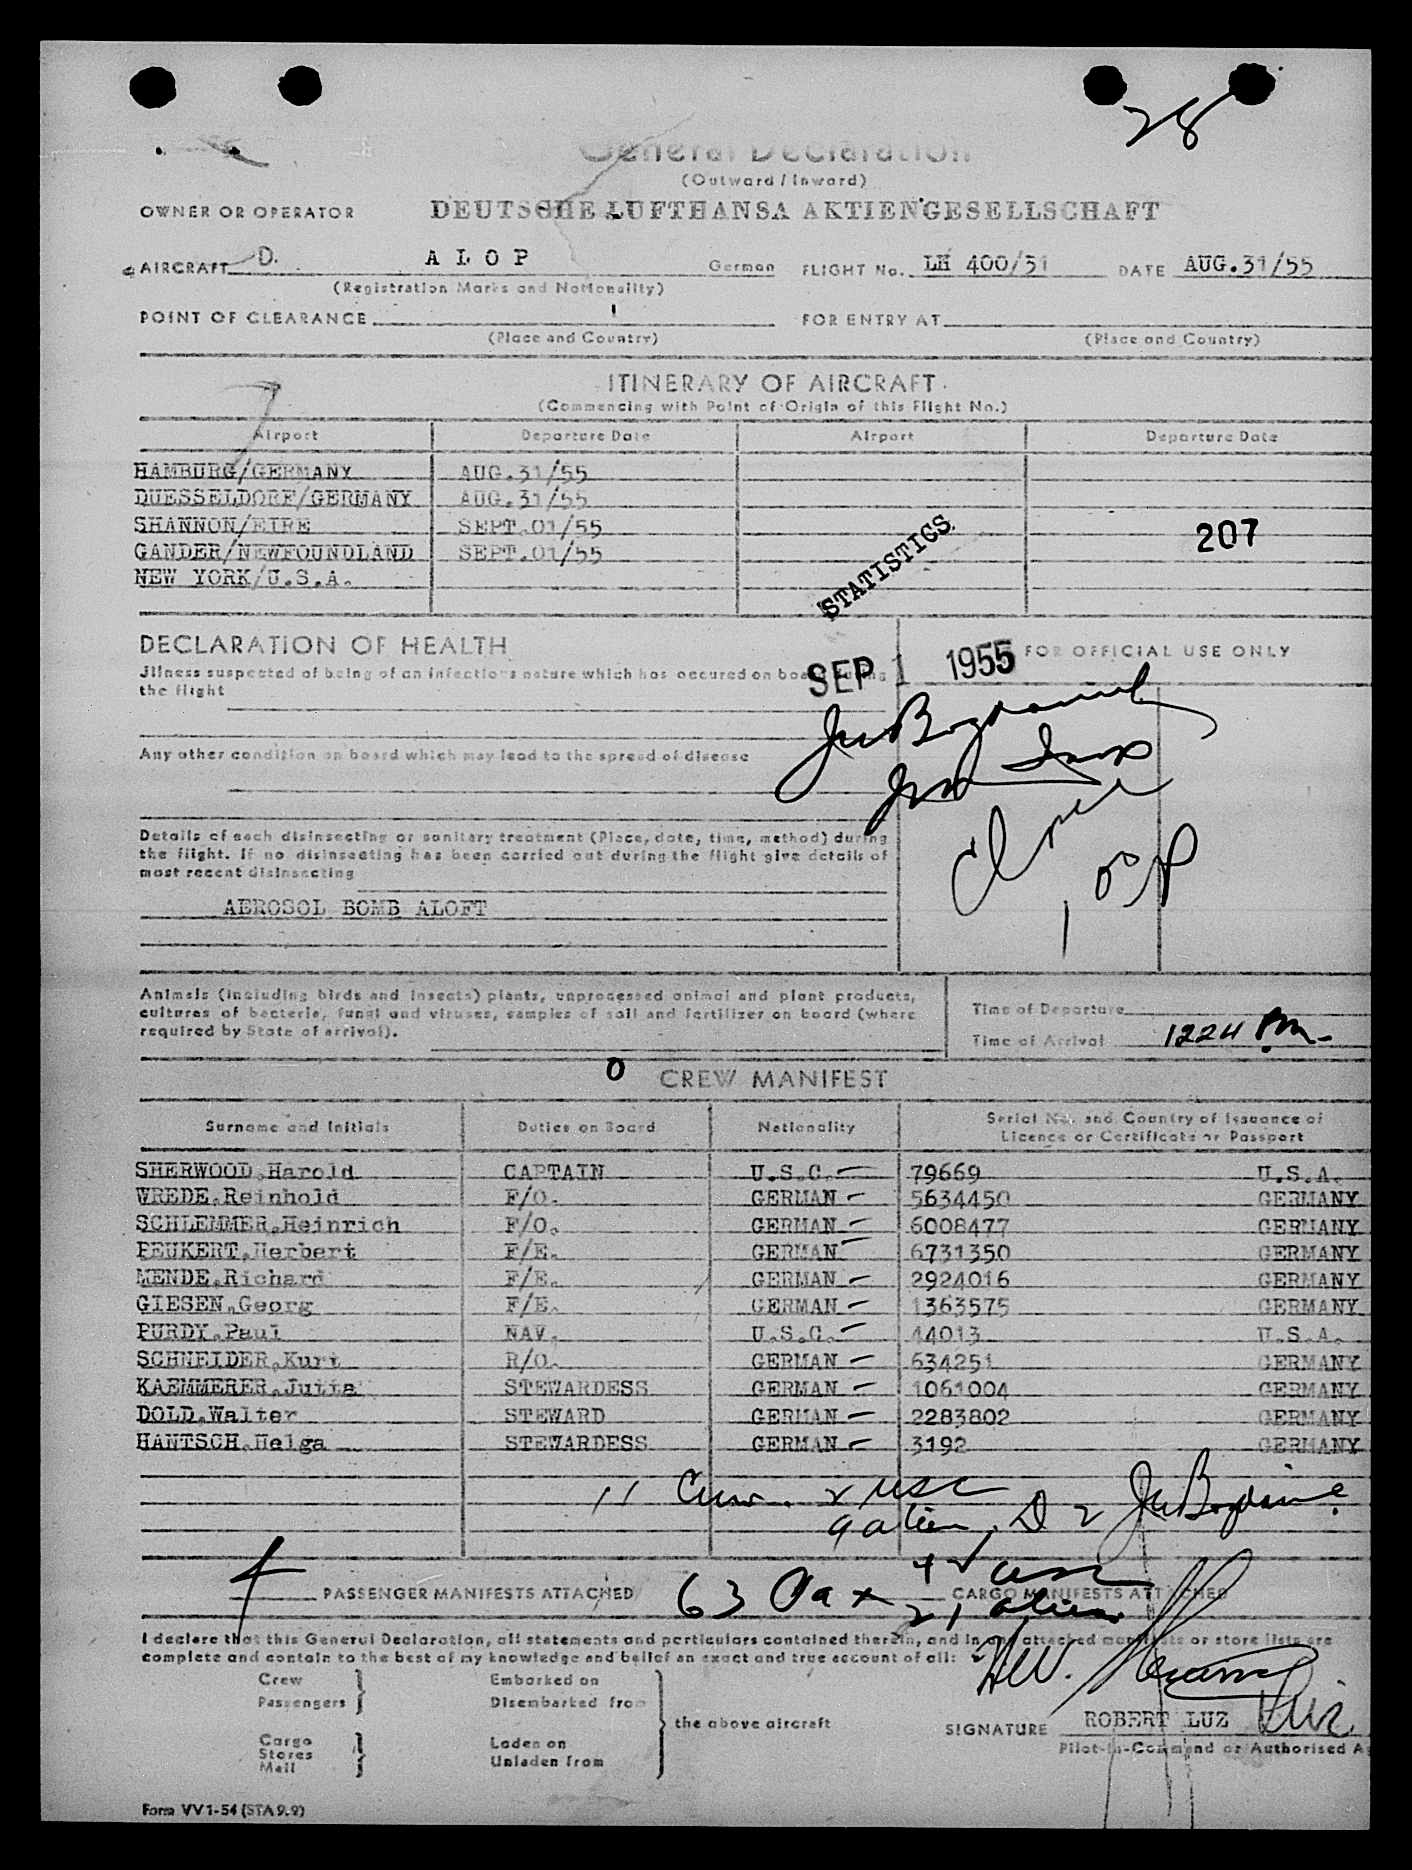 28
General Declaration
(Outward / Inward)
OWNER OR OPERATOR DEUTSCHE LUFTHANSA AKTIENGESELLSCHAFT
AIRCRAFT D. A L O P German FLIGHT No. LH 400/31 DATE AUG.31/55
(Registration Marks and Nationality)
POINT OF CLEARANCE FOR ENTRY AT
(Place and Country) (Place and Country)
ITINERARY OF AIRCRAFT
(Commencing with Point of Origin of this Flight No.)
Airport Departure Date Airport Departure Date
HAMBURG/GERMANY AUG.31/55
DUESSELDORF/GERMANY AUG.31/55
SHANNON/EIRE SEPT.01/55
GANDER/NEWFOUNDLAND SEPT.01/55
NEW YORK/U.S.A.
STATISTICS
207
DECLARATION OF HEALTH
FOR OFFICIAL USE ONLY
SEP 1 1955
Illness suspected of being of an infectious nature which has occured on board during
the flight
Any other condition on board which may lead to the spread of disease
Details of each disinsecting or sanitary treatment (Place, date, time, method) during
the flight. If no disinsecting has been carried out during the flight give details of
most recent disinsecting
AEROSOL BOMB ALOFT
Animals (including birds and insects) plants, unprocessed animal and plant products,
cultures of bacteria, fungi and viruses, samples of soil and fertilizer on board (where
required by State of arrival).
Time of Departure
Time of Arrival 1224 PM.
0 CREW MANIFEST
Surname and Initials Duties on Board Nationality Serial No. and Country of Issuance of
Licence or Certificate or Passport
SHERWOOD,Harold CAPTAIN U.S.C. 79669 U.S.A.
WREDE,Reinhold F/O. GERMAN 5634450 GERMANY
SCHLEMMER,Heinrich F/O. GERMAN 6008477 GERMANY
PEUKERT,Herbert F/E. GERMAN 6731350 GERMANY
MENDE,Richard F/E. GERMAN 2924016 GERMANY
GIESEN,Georg F/E. GERMAN 1363575 GERMANY
PURDY,Paul NAV. U.S.C. 44013 U.S.A.
SCHNEIDER,Kurt R/O. GERMAN 634251 GERMANY
KAEMMERER,Jutta STEWARDESS GERMAN 1061004 GERMANY
DOLD,Walter STEWARD GERMAN 2283802 GERMANY
HANTSCH,Helga STEWARDESS GERMAN 3192 GERMANY
11 Crew. 2 USC
9 alien, D 2
4 PASSENGER MANIFESTS ATTACHED 63 Pax 42 usc CARGO MANIFESTS ATTACHED
21 aliens
I declare that this General Declaration, all statements and particulars contained therein, and in any attached manifests or store lists are
complete and contain to the best of my knowledge and belief an exact and true account of all:
Crew Embarked on
Passengers Disembarked from
the above aircraft
Cargo Laden on
Stores Unladen from
Mail
SIGNATURE ROBERT LUZ Luz
Pilot-in-Command or Authorised A
Form VV 1-54 (STA 9.9)